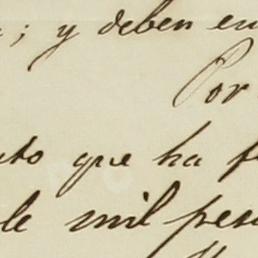 ; y deben en
Por
nto que ha f
de mil pes